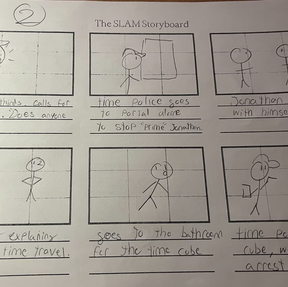 2
The SLAM Storyboard
calls for
Does anyone
time police goes
to portal alone
to stop "Prime" Jonathan
Jonathan
with himse
explaning
time travel.
goes to the bathroom
for the time cube
time po
cube, w
arrest